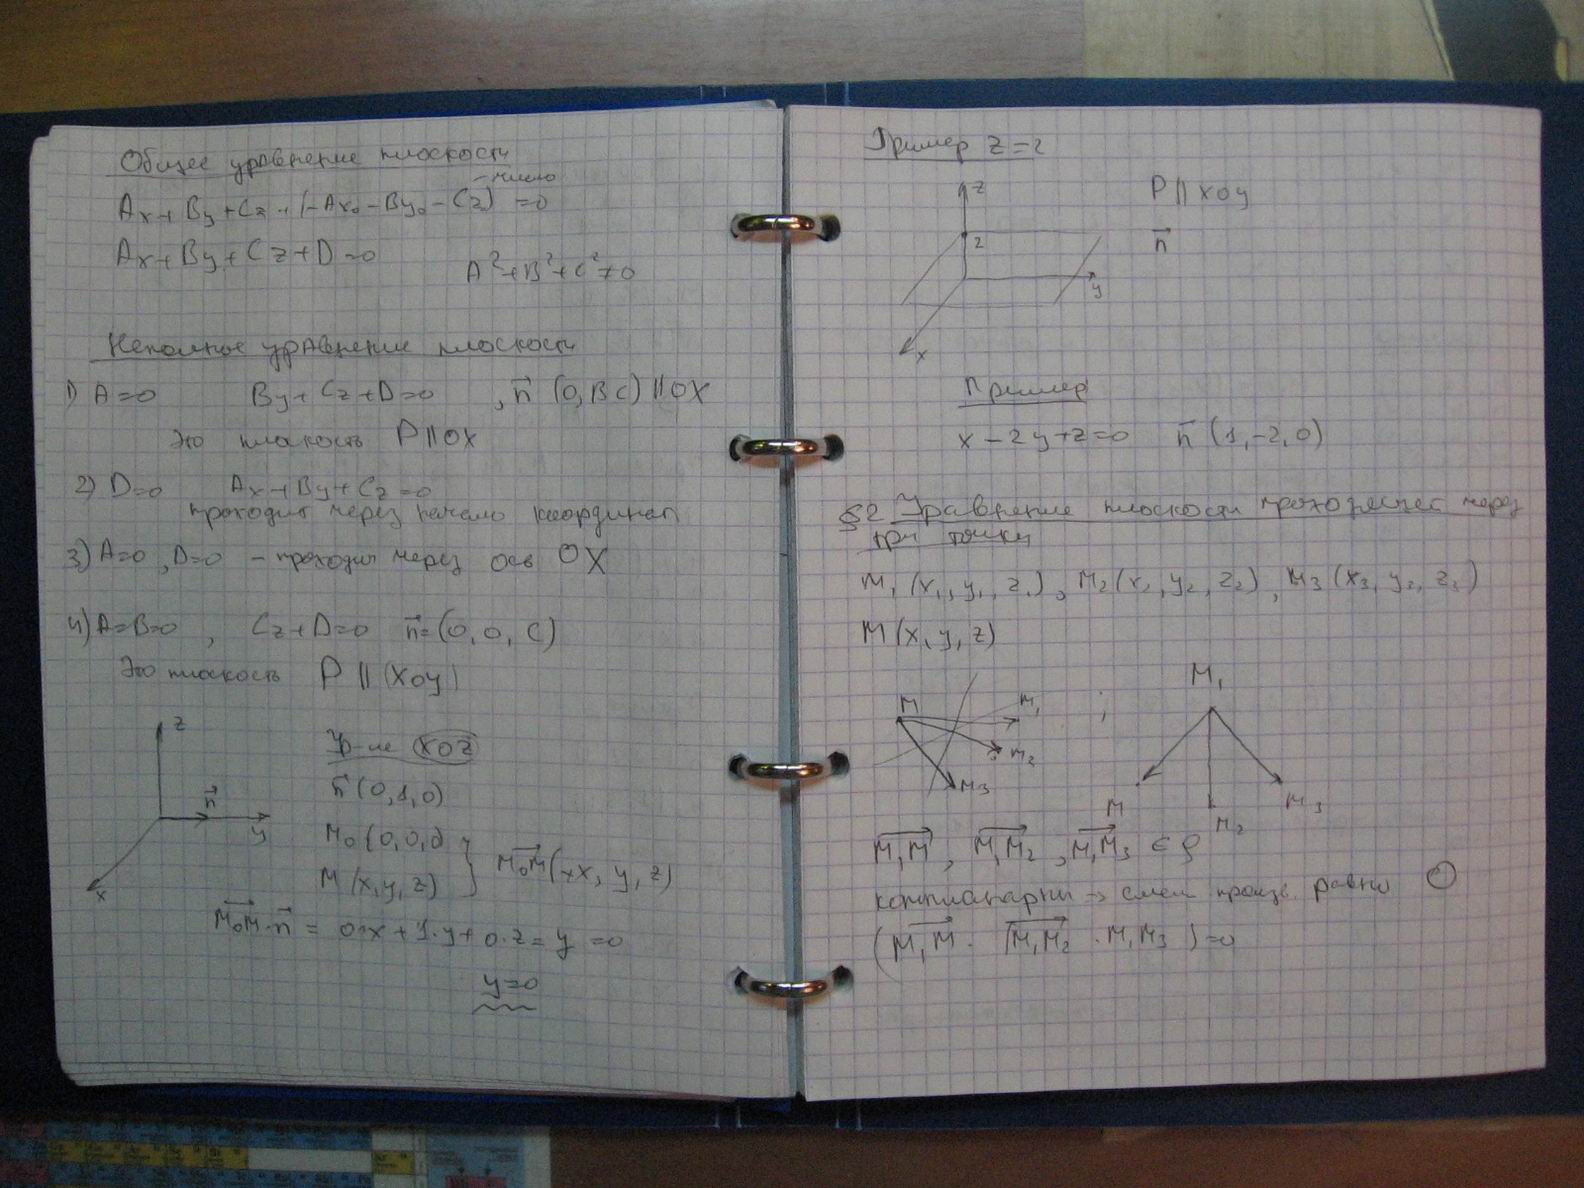 Общее уравнение плоскости
- число
Ax + By + Cz + (-Ax₀ - By₀ - Cz₀) = 0
Ax + By + Cz + D = 0
A² + B² + C² ≠ 0
Неполное уравнение плоскости
1) A=0 By + Cz + D=0 , n⃗ (0, B C) || OX
Это плоскость P || OX
2) D=0 Ax + By + Cz = 0
проходит через начало координат
3) A=0, D=0 - проходит через ось OX
4) A=B=0 , Cz + D=0 n⃗ = (0, 0, C)
Это плоскость P || (xoy)
z
n⃗
y
x
Ур-ие xoz
n⃗ (0, 1, 0)
M₀ (0, 0, 0)
M (x, y, z)
M₀M (x, y, z)
M₀M · n⃗ = 0·x + 1·y + 0·z = y = 0
y=0
Пример z=2
z
2
y
x
P || xoy
n⃗
Пример
x - 2y + z = 0 n⃗ (1, -2, 0)
§2 Уравнение плоскости проходящей через
три точки
M₁ (x₁, y₁, z₁), M₂ (x₂, y₂, z₂), M₃ (x₃, y₃, z₃)
M (x, y, z)
M
M₁
M₂
M₃
;
M₁
M
M₂
M₃
M₁M, M₁M₂, M₁M₃ ∈ ρ
компланарны → смеш произв. равно 0
(M₁M · M₁M₂ · M₁M₃) = 0